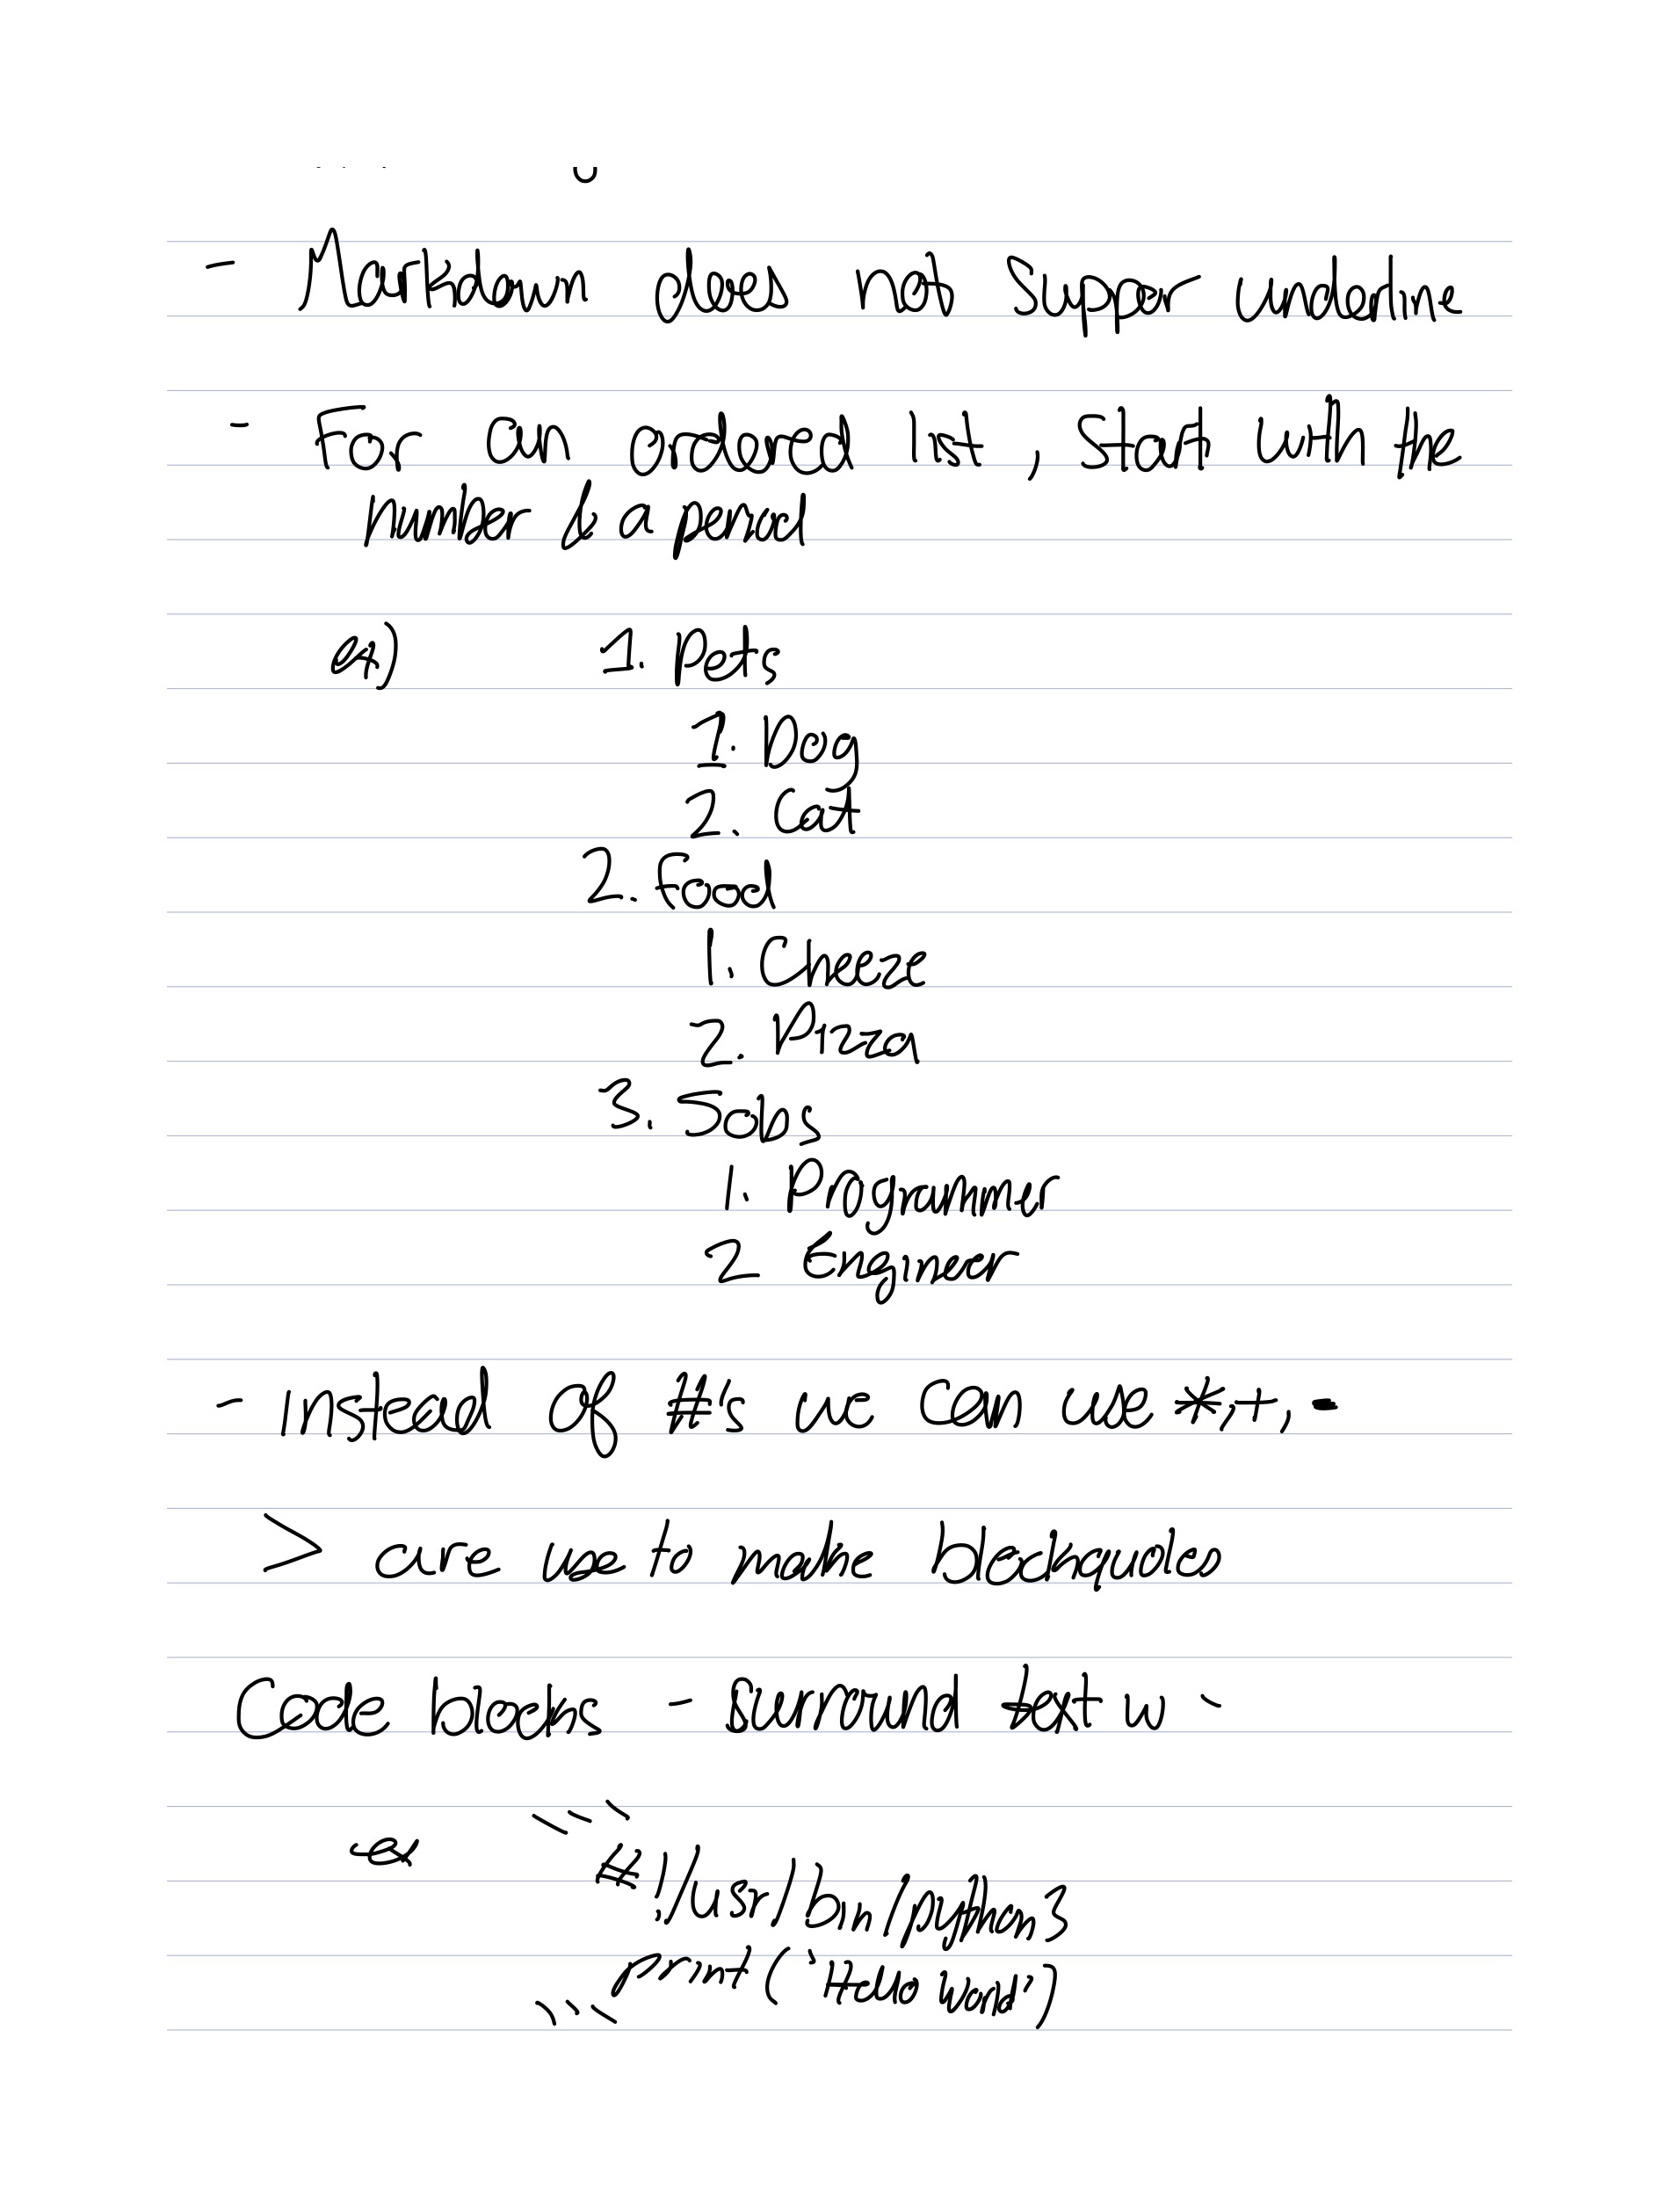 - Markdown does not suppor underline
- For an ordered list, start with the
number & a period
ex) 1. Pets
1. Dog
2. Cat
2. Food
1. Cheeze
2. Pizza
3. Jobs
1. Programmer
2 Engineer
- instead of #'s we can use *, +, -
> are use to make blockquotes
Code blocks - surround text w `
ex ```
#!/usr/bin/python3
print('Hello World')
```